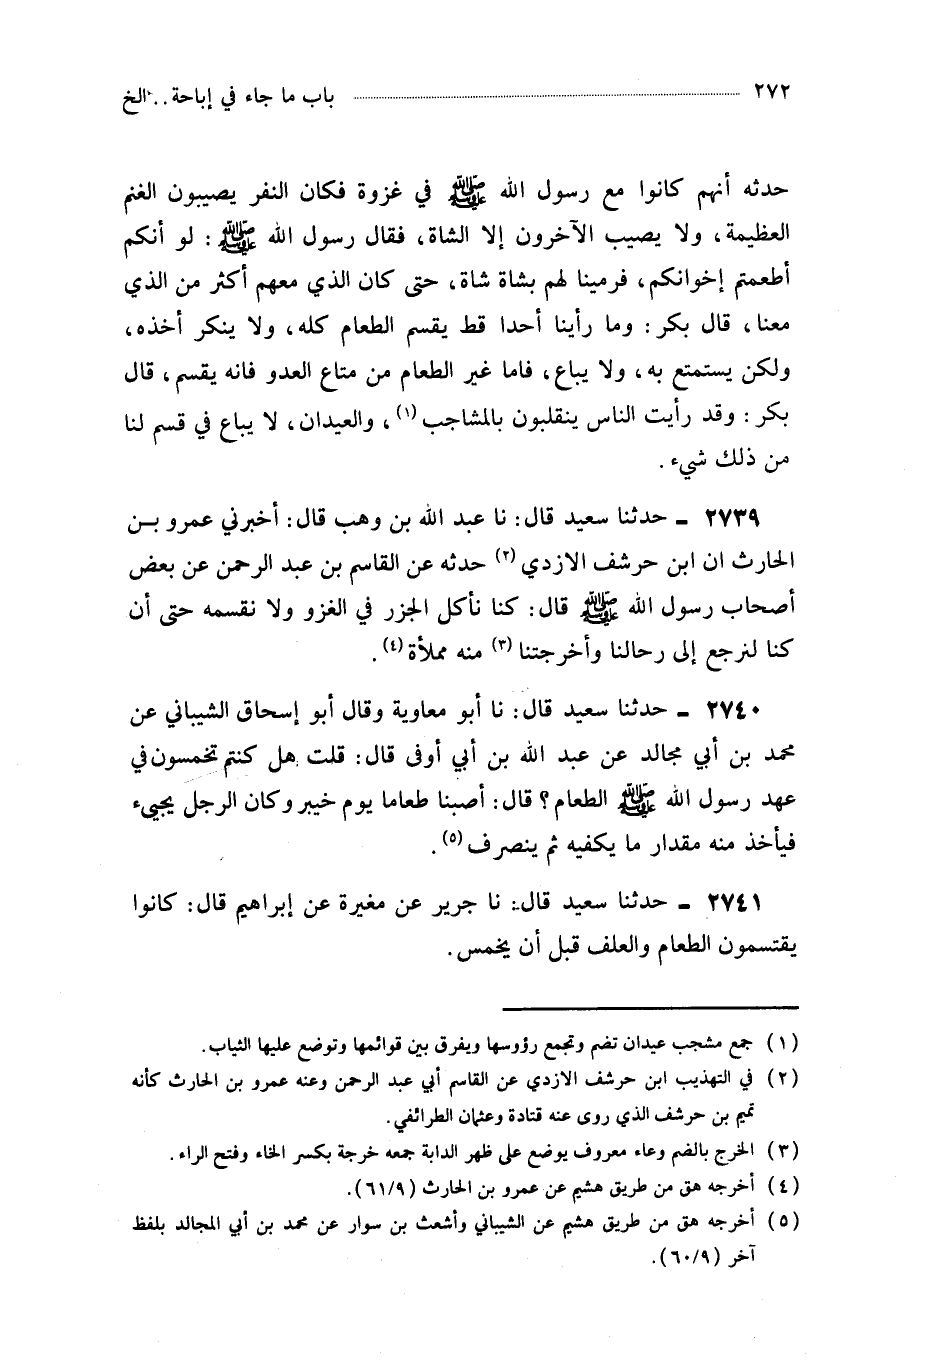 ٢٧٢ باب ما جاء في إباحة.. الخ
حدثه أنهم كانوا مع رسول الله ﷺ في غزوة فكان النفر يصيبون الغنم
العظيمة، ولا يصيب الآخرون إلا الشاة، فقال رسول الله ﷺ : لو أنكم
أطعمتم إخوانكم، فرمينا لهم بشاة شاة، حتى كان الذي معهم أكثر من الذي
معنا، قال بكر: وما رأينا أحدا قط يقسم الطعام كله، ولا ينكر أخذه،
ولكن يستمتع به، ولا يباع، فاما غير الطعام من متاع العدو فانه يقسم، قال
بكر: وقد رأيت الناس ينقلبون بالمشاجب (١)، والعيدان، لا يباع في قسم لنا
من ذلك شيء.
٢٧٣٩ ـ حدثنا سعيد قال: نا عبد الله بن وهب قال: أخبرني عمرو بـن
الحارث ان ابن حرشف الازدي (٢) حدثه عن القاسم بن عبد الرحمن عن بعض
أصحاب رسول الله ﷺ قال: كنا نأكل الجزر في الغزو ولا نقسمه حتى أن
كنا لنرجع إلى رحالنا وأخرجتنا (٣) منه مملأة (٤).
٢٧٤٠ ـ حدثنا سعيد قال: نا أبو معاوية وقال أبو إسحاق الشيباني عن
محمد بن أبي مجالد عن عبد الله بن أبي أوفى قال: قلت هل كنتم تخمسون في
عهد رسول الله ﷺ الطعام؟ قال: أصبنا طعاما يوم خيبر وكان الرجل يجيىء
فيأخذ منه مقدار ما يكفيه ثم ينصرف (٥).
٢٧٤١ ـ حدثنا سعيد قال: نا جرير عن مغيرة عن إبراهيم قال: كانوا
يقتسمون الطعام والعلف قبل أن يخمس.
(١) جمع مشجب عيدان تضم وتجمع رؤوسها ويفرق بين قوائمها وتوضع عليها الثياب.
(٢) في التهذيب ابن حرشف الازدي عن القاسم أبي عبد الرحمن وعنه عمرو بن الحارث كأنه
تميم بن حرشف الذي روى عنه قتادة وعثمان الطرائفي.
(٣) الخرج بالضم وعاء معروف يوضع على ظهر الدابة جمعه خرجة بكسر الخاء وفتح الراء.
(٤) أخرجه هق من طريق هشيم عن عمرو بن الحارث (٦١/٩).
(٥) أخرجه هق من طريق هشيم عن الشيباني وأشعث بن سوار عن محمد بن أبي المجالد بلفظ
آخر (٦٠/٩).